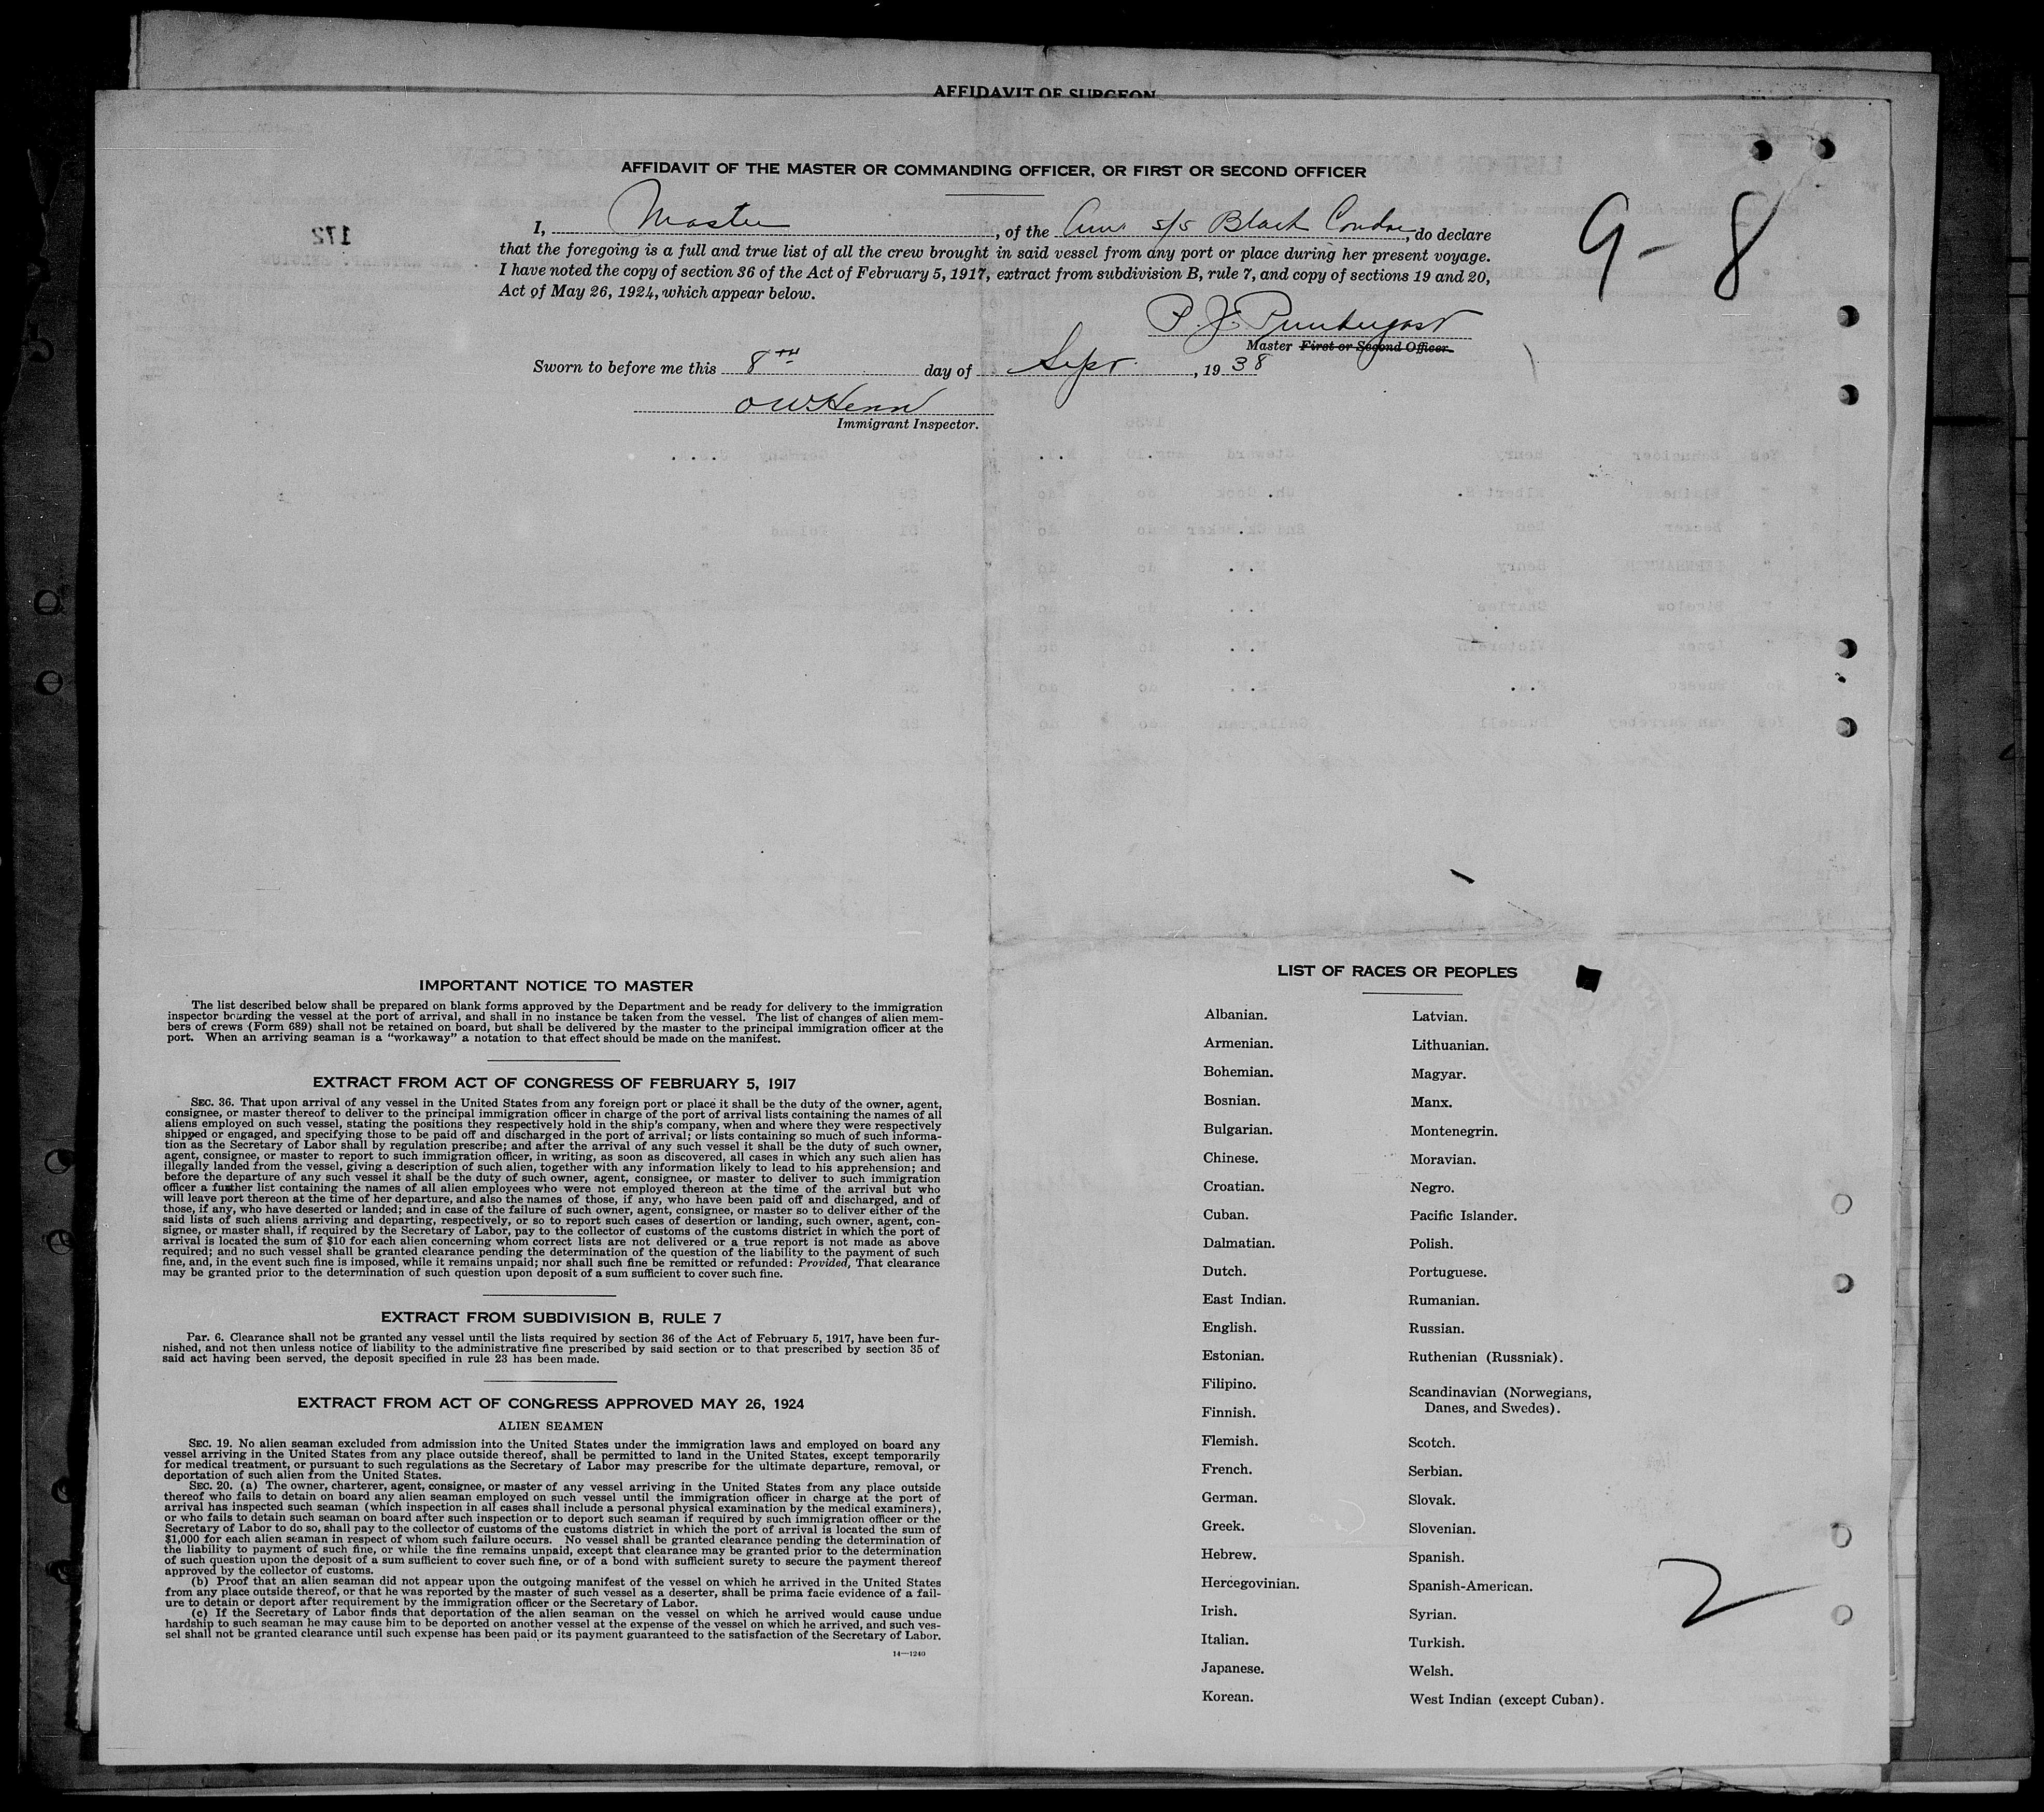 AFFIDAVIT OF SURGEON
AFFIDAVIT OF THE MASTER OR COMMANDING OFFICER, OR FIRST OR SECOND OFFICER
I, Master, of the Am. S/S Black Condor, do declare
that the foregoing is a full and true list of all the crew brought in said vessel from any port or place during her present voyage.
I have noted the copy of section 36 of the Act of February 5, 1917, extract from subdivision B, rule 7, and copy of sections 19 and 20,
Act of May 26, 1924, which appear below.
9-8
P. J. Prendergast
Master First or Second Officer.
Sworn to before me this 8TH day of Sept., 1938
OW Henn
Immigrant Inspector.
172
IMPORTANT NOTICE TO MASTER
The list described below shall be prepared on blank forms approved by the Department and be ready for delivery to the immigration
inspector boarding the vessel at the port of arrival, and shall in no instance be taken from the vessel. The list of changes of alien mem-
bers of crews (Form 689) shall not be retained on board, but shall be delivered by the master to the principal immigration officer at the
port. When an arriving seaman is a "workaway" a notation to that effect should be made on the manifest.
EXTRACT FROM ACT OF CONGRESS OF FEBRUARY 5, 1917
SEC. 36. That upon arrival of any vessel in the United States from any foreign port or place it shall be the duty of the owner, agent,
consignee, or master thereof to deliver to the principal immigration officer in charge of the port of arrival lists containing the names of all
aliens employed on such vessel, stating the positions they respectively hold in the ship's company, when and where they were respectively
shipped or engaged, and specifying those to be paid off and discharged in the port of arrival; or lists containing so much of such informa-
tion as the Secretary of Labor shall by regulation prescribe; and after the arrival of any such vessel it shall be the duty of such owner,
agent, consignee, or master to report to such immigration officer, in writing, as soon as discovered, all cases in which any such alien has
illegally landed from the vessel, giving a description of such alien, together with any information likely to lead to his apprehension; and
before the departure of any such vessel it shall be the duty of such owner, agent, consignee, or master to deliver to such immigration
officer a further list containing the names of all alien employees who were not employed thereon at the time of the arrival but who
will leave port thereon at the time of her departure, and also the names of those, if any, who have been paid off and discharged, and of
those, if any, who have deserted or landed; and in case of the failure of such owner, agent, consignee, or master so to deliver either of the
said lists of such aliens arriving and departing, respectively, or so to report such cases of desertion or landing, such owner, agent, con-
signee, or master shall, if required by the Secretary of Labor, pay to the collector of customs of the customs district in which the port of
arrival is located the sum of $10 for each alien concerning whom correct lists are not delivered or a true report is not made as above
required; and no such vessel shall be granted clearance pending the determination of the question of the liability to the payment of such
fine, and, in the event such fine is imposed, while it remains unpaid; nor shall such fine be remitted or refunded: Provided, That clearance
may be granted prior to the determination of such question upon deposit of a sum sufficient to cover such fine.
EXTRACT FROM SUBDIVISION B, RULE 7
Par. 6. Clearance shall not be granted any vessel until the lists required by section 36 of the Act of February 5, 1917, have been fur-
nished, and not then unless notice of liability to the administrative fine prescribed by said section or to that prescribed by section 35 of
said act having been served, the deposit specified in rule 23 has been made.
EXTRACT FROM ACT OF CONGRESS APPROVED MAY 26, 1924
ALIEN SEAMEN
SEC. 19. No alien seaman excluded from admission into the United States under the immigration laws and employed on board any
vessel arriving in the United States from any place outside thereof, shall be permitted to land in the United States, except temporarily
for medical treatment, or pursuant to such regulations as the Secretary of Labor may prescribe for the ultimate departure, removal, or
deportation of such alien from the United States.
SEC. 20. (a) The owner, charterer, agent, consignee, or master of any vessel arriving in the United States from any place outside
thereof who fails to detain on board any alien seaman employed on such vessel until the immigration officer in charge at the port of
arrival has inspected such seaman (which inspection in all cases shall include a personal physical examination by the medical examiners),
or who fails to detain such seaman on board after such inspection or to deport such seaman if required by such immigration officer or the
Secretary of Labor to do so, shall pay to the collector of customs of the customs district in which the port of arrival is located the sum of
$1,000 for each alien seaman in respect of whom such failure occurs. No vessel shall be granted clearance pending the determination of
the liability to payment of such fine, or while the fine remains unpaid, except that clearance may be granted prior to the determination
of such question upon the deposit of a sum sufficient to cover such fine, or of a bond with sufficient surety to secure the payment thereof
approved by the collector of customs.
(b) Proof that an alien seaman did not appear upon the outgoing manifest of the vessel on which he arrived in the United States
from any place outside thereof, or that he was reported by the master of such vessel as a deserter, shall be prima facie evidence of a fail-
ure to detain or deport after requirement by the immigration officer or the Secretary of Labor.
(c) If the Secretary of Labor finds that deportation of the alien seaman on the vessel on which he arrived would cause undue
hardship to such seaman he may cause him to be deported on another vessel at the expense of the vessel on which he arrived, and such ves-
sel shall not be granted clearance until such expense has been paid or its payment guaranteed to the satisfaction of the Secretary of Labor.
14—1240
LIST OF RACES OR PEOPLES
Albanian.
Armenian.
Bohemian.
Bosnian.
Bulgarian.
Chinese.
Croatian.
Cuban.
Dalmatian.
Dutch.
East Indian.
English.
Estonian.
Filipino.
Finnish.
Flemish.
French.
German.
Greek.
Hebrew.
Hercegovinian.
Irish.
Italian.
Japanese.
Korean.
Latvian.
Lithuanian.
Magyar.
Manx.
Montenegrin.
Moravian.
Negro.
Pacific Islander.
Polish.
Portuguese.
Rumanian.
Russian.
Ruthenian (Russniak).
Scandinavian (Norwegians,
Danes, and Swedes).
Scotch.
Serbian.
Slovak.
Slovenian.
Spanish.
Spanish-American.
Syrian.
Turkish.
Welsh.
West Indian (except Cuban).
2